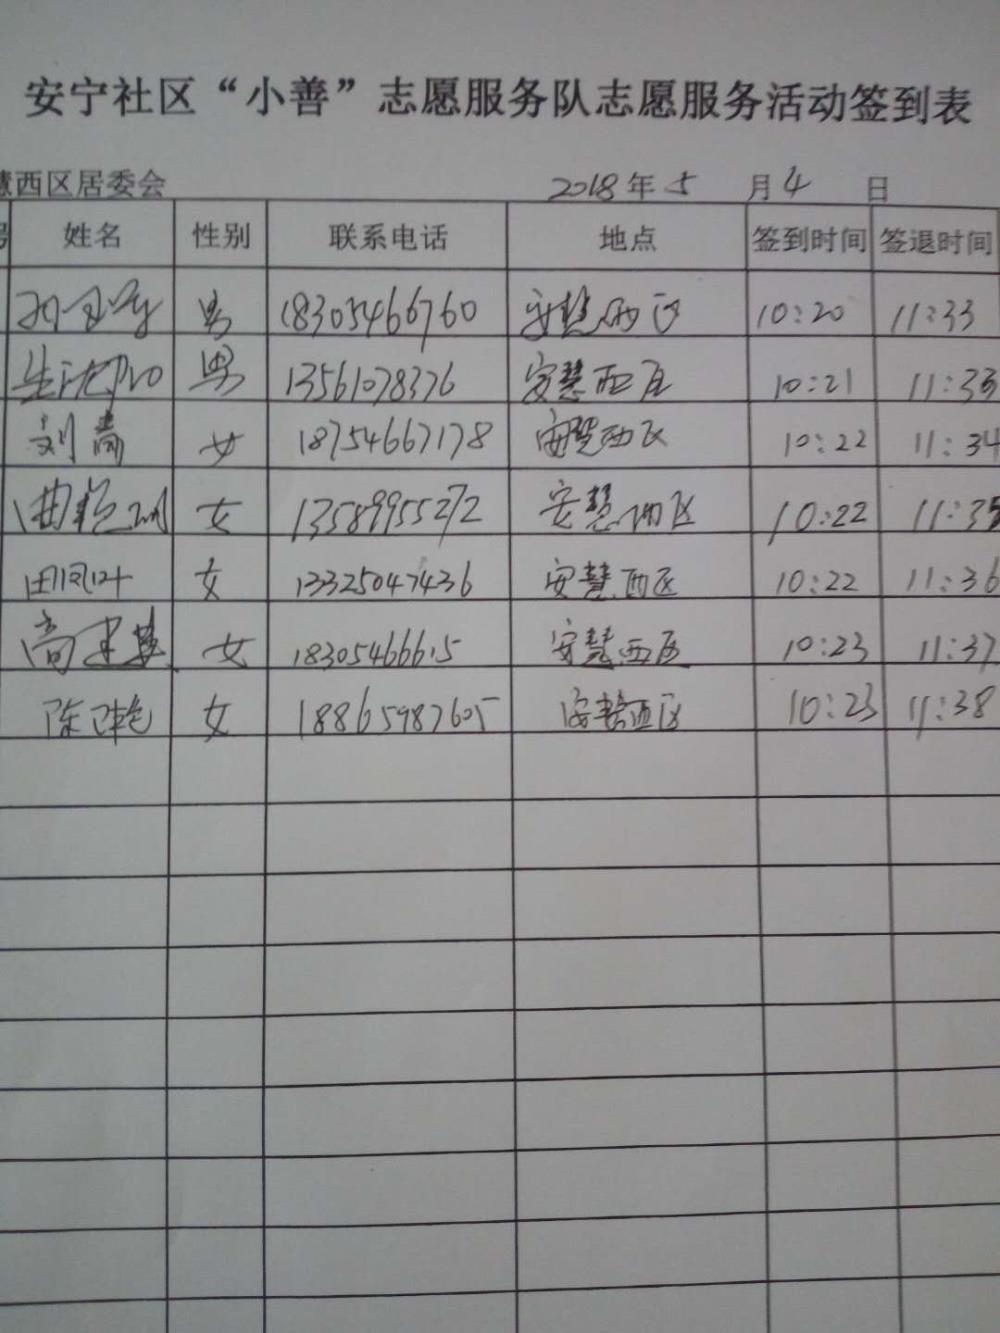 安宁社区“小善”志愿服务队志愿服务活动签到表
慧西区居委会 2018年5月4日
号 姓名 性别 联系电话 地点 签到时间 签退时间
男 18305466760 安慧西区 10:20 11:33
男 13561078376 安慧西区 10:21 11:33
刘 女 18754667178 安慧西区 10:22 11:34
女 13589955272 安慧西区 10:22 11:35
田凤叶 女 13325047436 安慧西区 10:22 11:36
高 女 18305466615 安慧西区 10:23 11:37
陈艳 女 18865987605 安慧西区 10:23 11:38